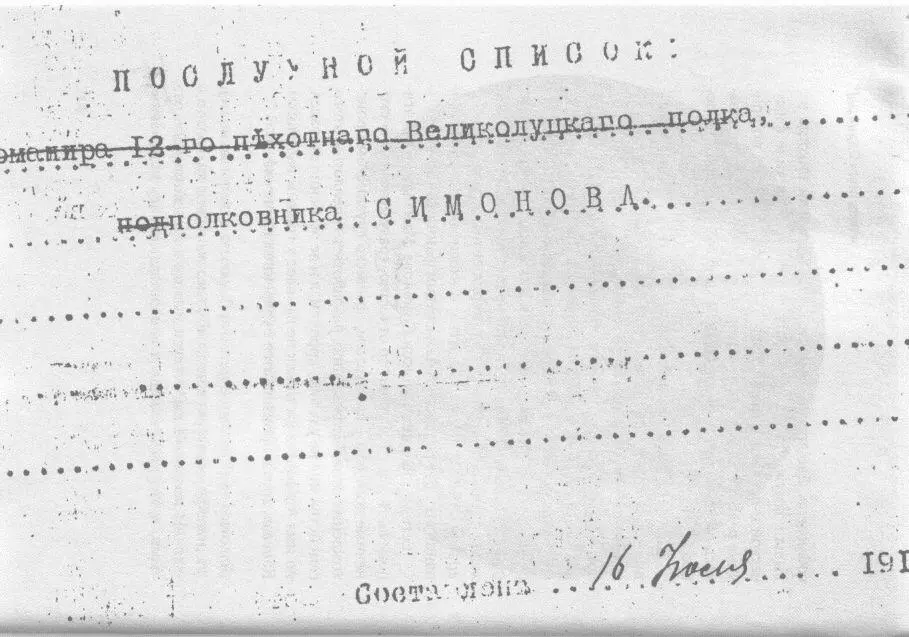 ПОСЛУЖНОЙ СПИСОК:
оманира 12-го пѣхотнаго Великолуцкаго полка,
подполковника СИМОНОВА.
Составлена 16 Июля 191